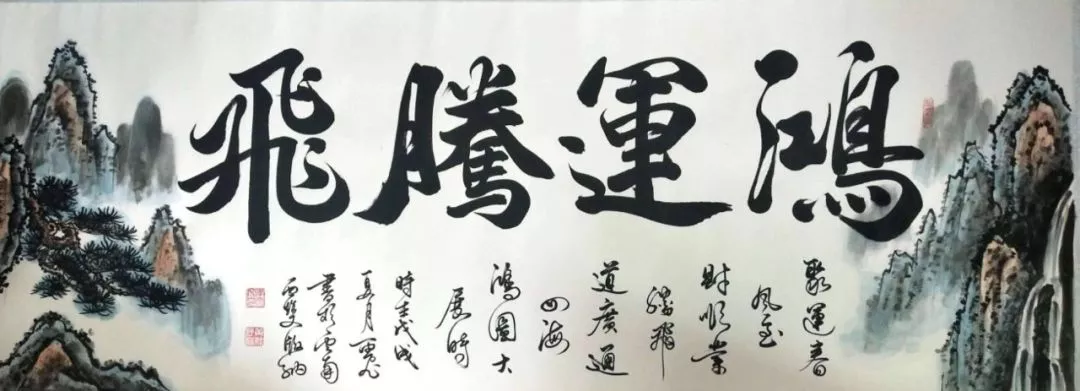 鴻運騰飛
聚運春
風至
財順業
騰飛
道廣通
四海
鴻圖大
展時
時
夏月
書於雲南
西雙版納